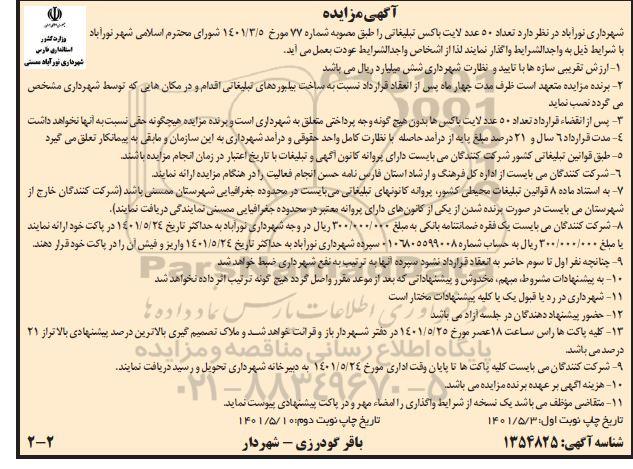 آگهی مزایده
وزارت کشور
استانداری فارس
شهرداری نورآباد ممسنی
شهرداری نورآباد در نظر دارد تعداد ۵۰ عدد لایت باکس تبلیغاتی را طبق مصوبه شماره ۷۷ مورخ ۱۴۰۱/۳/۵ شورای محترم اسلامی شهر نورآباد
با شرایط ذیل به واجدالشرایط واگذار نمایند لذا از اشخاص واجدالشرایط عودت بعمل می آید.
۱- ارزش تقریبی سازه ها با تایید و نظارت شهرداری شش میلیارد ریال می باشد
۲- برنده مزایده متعهد است ظرف مدت چهار ماه پس از انعقاد قرارداد نسبت به ساخت بیلبوردهای تبلیغاتی اقدام و در مکان هایی که توسط شهرداری مشخص
می گردد نصب نماید
۳- پس از انقضاء قرارداد تعداد ۵۰ عدد لایت باکس ها بدون هیچ گونه وجه پرداختی متعلق به شهرداری است و برنده مزایده هیچگونه حقی نسبت به آنها نخواهد داشت
۴- مدت قرارداد ۶ سال و ۲۱ درصد مبلغ پایه از درآمد حاصله با نظارت کامل واحد حقوقی و درآمد شهرداری به این سازمان و مابقی به پیمانکار تعلق می گیرد
۵- طبق قوانین تبلیغاتی کشور شرکت کنندگان می بایست دارای پروانه کانون آگهی و تبلیغات با تاریخ اعتبار در زمان انجام مزایده باشند.
۶- شرکت کنندگان می بایست از اداره کل فرهنگ و ارشاد استان فارس نامه حسن انجام فعالیت را در هنگام مزایده ارائه نمایند.
۷- به استناد ماده ۸ قوانین تبلیغات محیطی کشور، پروانه کانونهای تبلیغاتی می بایست در محدوده جغرافیایی شهرستان ممسنی باشد (شرکت کنندگان خارج از
شهرستان می بایست در صورت برنده شدن از یکی از کانون های دارای پروانه معتبر در محدوده جغرافیایی ممسنی نمایندگی دریافت نمایند).
۸- شرکت کنندگان می بایست یک فقره ضمانتنامه بانکی به مبلغ ۳۰۰/۰۰۰/۰۰۰ ریال در وجه شهرداری نورآباد به حداکثر تاریخ ۱۴۰۱/۵/۲۴ در پاکت خود ارائه نمایند
یا مبلغ ۳۰۰/۰۰۰/۰۰۰ ریال به حساب شماره ۰۱۰۶۸۰۰۵۹۹۰۰۸ سپرده شهرداری نورآباد به حداکثر تاریخ ۱۴۰۱/۵/۲۴ واریز و فیش آن را در پاکت خود قرار دهند.
۹- چنانچه نفر اول تا سوم حاضر به انعقاد قرارداد نشود سپرده آنها به ترتیب به نفع شهرداری ضبط خواهد شد
۱۰- به پیشنهادات مشروط، مبهم، مخدوش و پیشنهاداتی که بعد از موعد مقرر واصل گردد هیچ گونه ترتیب اثر داده نخواهد شد
۱۱- شهرداری در رد یا قبول یک یا کلیه پیشنهادات مختار است
۱۲- حضور پیشنهاد دهندگان در جلسه آزاد می باشد
۱۳- کلیه پاکت ها راس ساعت ۱۸ عصر مورخ ۱۴۰۱/۵/۲۵ در دفتر شهردار باز و قرائت خواهد شد و ملاک تصمیم گیری بالاترین درصد پیشنهادی بالاتر از ۲۱
درصد می باشد.
۹- شرکت کنندگان می بایست کلیه پاکت ها تا پایان وقت اداری مورخ ۱۴۰۱/۵/۲۴ به دبیرخانه شهرداری تحویل و رسید دریافت نمایند.
۱۰- هزینه آگهی بر عهده برنده مزایده می باشد.
۱۱- متقاضی موظف می باشد یک نسخه از شرایط واگذاری را امضاء مهر و در پاکت پیشنهادی پیوست نماید.
تاریخ چاپ نوبت اول: ۱۴۰۱/۵/۳ تاریخ چاپ نوبت دوم: ۱۴۰۱/۵/۱۰
شناسه آگهی: ۱۳۵۴۸۲۵ باقر گودرزی – شهردار ۲-۲
پایگاه اطلاع رسانی مناقصه و مزایده
۰۲۱-۸۸۳۴۹۶۷۰-۵